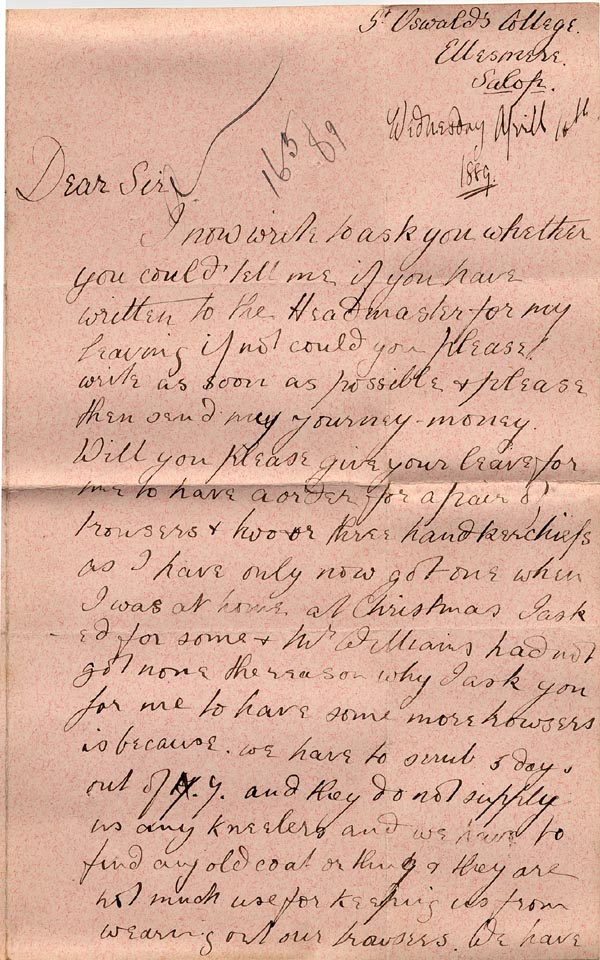 St Oswald's College.
Ellesmere.
Salop.
Wednesday April 10th
1889.
16 5 89
Dear Sir
I now write to ask you whether
you could tell me if you have
written to the Headmaster for my
leaving if not could you please
write as soon as possible & please
then send my yourney-money.
Will you please give your leave for
me to have a order for a pair of
trousers & two or three handkerchiefs
as I have only now got one when
I was at home at Christmas I ask
ed for some & Mr Williams had not
got none the reason why I ask you
for me to have some more trowsers
is because. we have to scrub 5 days
out of 7. and they do not supply
us any kneelers and we have to
find any old coat or thing & they are
not much use for keeping us from
wearing out our trousers. We have